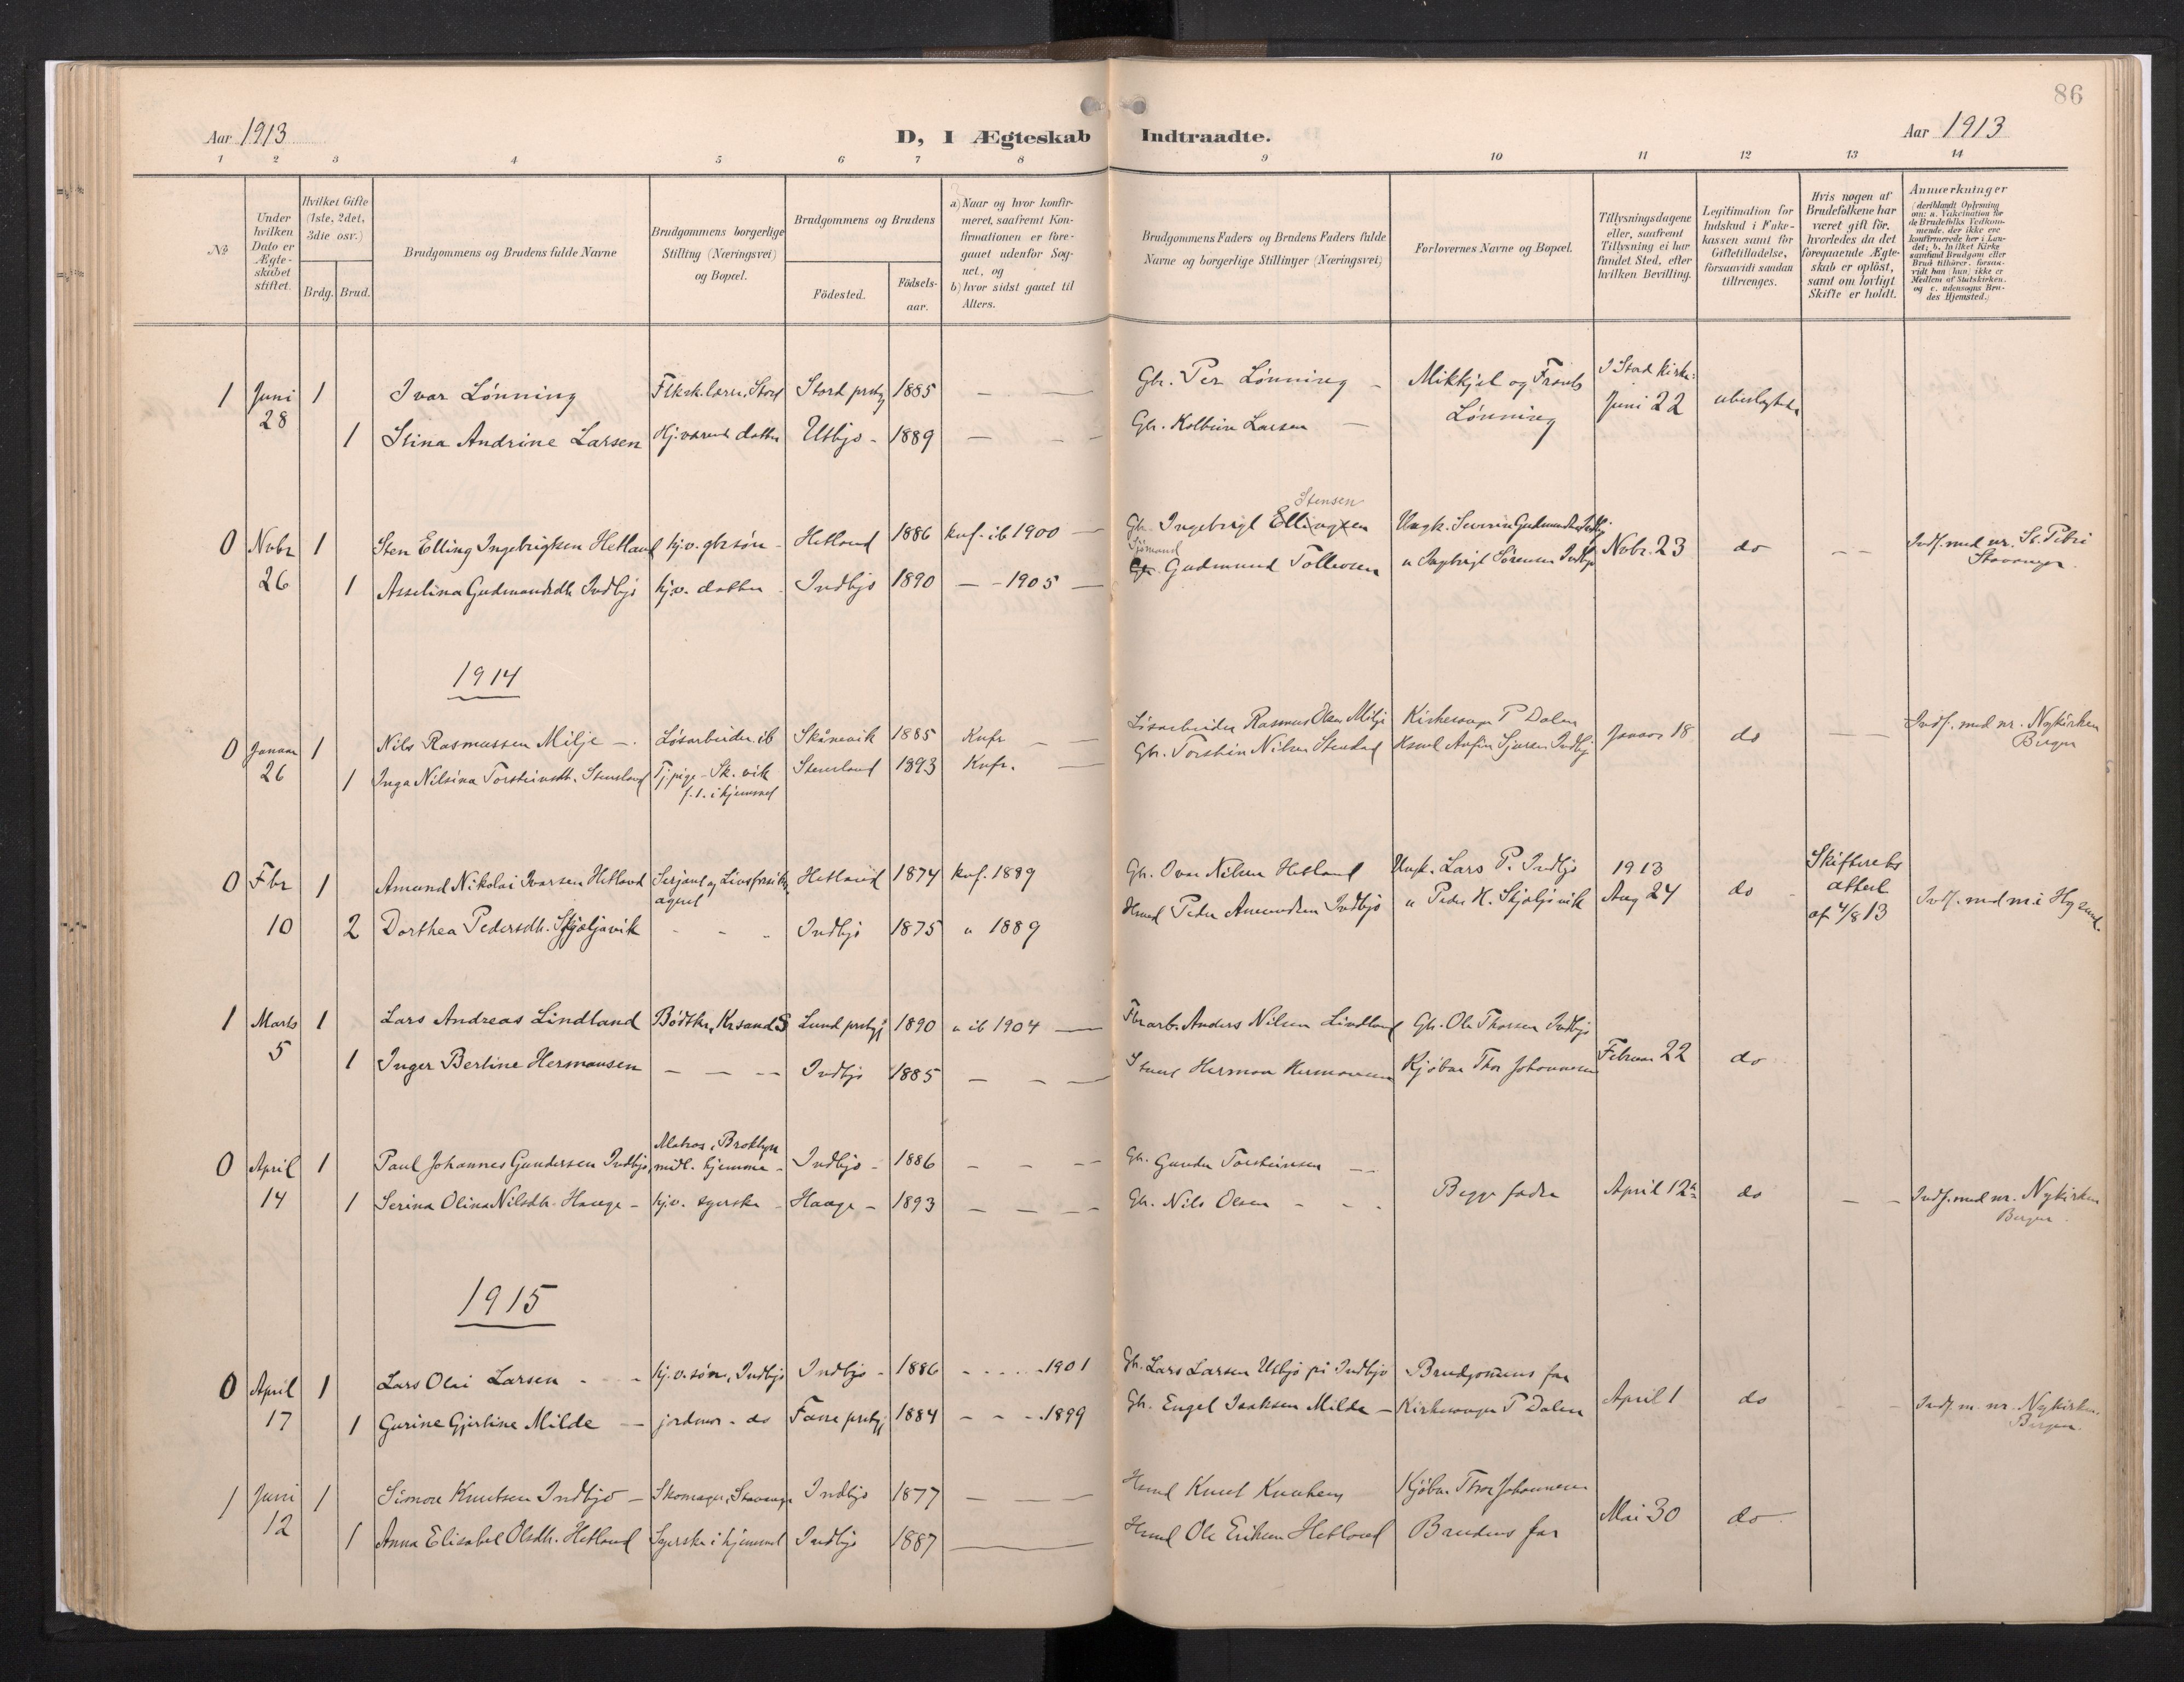 86
Aar 1913
D, I Ægteskab Indtraadte.
Aar 1913
1 2 3 4 5 6 7 8 9 10 11 12 13 14
№
Under hvilken Dato er Ægteskabet stiftet.
Hvilket Gifte (1ste, 2det, 3die osv.)
Brdg. Brud.
Brudgommens og Brudens fulde Navne
Brudgommens borgerlige Stilling (Næringsvei) og Bopæl.
Brudgommens og Brudens
Födested.
Födsels-aar.
a) Naar og hvor konfirmeret, saafremt Konfirmationen er foregaaet udenfor Sognet, og
b) hvor sidst gaaet til Alters.
Brudgommens Faders og Brudens Faders fulde Navne og borgerlige Stillinger (Næringsvei)
Forlovernes Navne og Bopæl.
Tillysningsdagene eller, saafremt Tillysning ei har fundet Sted, efter hvilken Bevilling.
Legitimation for Indskud i Enkekassen samt for Giftetilladelse, forsaavidt saadan tiltrænges.
Hvis nogen af Brudefolkene har været gift för, hvorledes da det foregaaende Ægteskab er oplöst, samt om lovligt Skifte er holdt.
Anmærkninger (deriblandt Oplysning om: a. Vakcination for de Brudefolks Vedkommende, der ikke ere konfirmerede her i Landet; b. hvilket Kirkesamfund Brudgom eller Brud tilhörer, forsaavidt han (hun) ikke er Medlem af Statskirken, og c. udensogns Brudes Hjemsted.)
1 Juni 28 1 Ivar Lönning Flksk.lærer, Stord Stord prstgj 1885 — — Gbr. Per Lönning – Mikkjel og Frants Lönning I Stord Kirke: Juni 22 ubeslægtede
1 Stina Andrine Larsen Hj.værende datter Utbjo - 1889 — — Gbr. Kolbein Larsen —
0 Nvbr 26 1 Sten Elling Ingebrigtsen Hetland hj.v. gbrsön - Hetland 1886 knf. ib 1900 — Gbr. Ingebrigt Ellingsen Stensen Ungk. Severin Gudmundsen Indbjo Nvbr. 23 do — — Indf. med nr. St. Petri Stavanger.
1 Asselina Gudmundsdtr Indbjo hj.v. datter - Indbjo 1890 — – 1905 — Sjömand Gbr. Gudmund Tollevsen " Ingebrigt Sörensen Indbjo
1914
0 Januar 26 1 Nils Rasmussen Milje —. Lösarbeider ib Skånevik 1885 Knfr. — — Lösarbeider Rasmus Olsen Milje Kirkesanger P Dalen Januar 18 do — — Indf. med nr. Nykirken Bergen
1 Inga Nilsina Torsteinsdtr. Stensland Tj.pige - Sk.vik f. t. i hjemmet Stensland 1893 Knfr. — Gbr. Torstein Nilsen Stensland
0 Fbr 10 1 Amund Nikolai Ivarsen Hetland Serjant og Livsforsikr. agent Hetland 1874 knf. 1889 Gbr. Iver Nilsen Hetland Ungk. Lars P. Indbjo 1913 Aug 24 do - Skifterets attest af 4/8 13
2 Dorthea Pedersdtr. Skjæljavik - - - Indbjo 1875 " 1889 Hmd Peder Amundsen Indbjo " Peder H. Skjæljavik
1 Marts 5 1 Lars Andreas Lindland Bödtker, Krsand S Lund prstgj 1890 " ib 1904 — Fbrarb. Anders Nilsen Lindland Gbr. Ole Thorsen Indbjo Februar 22 do
1 Inger Bertine Hermansen — — — Indbjo 1885 — — — Herman Hermansen Kjöbm. Thor Johannesen
0 April 14 1 Paul Johannes Gundersen Indbjo Matros, Broklyn midl. hjemme - Indbjo - 1886 — — — Gbr. Gunder Torsteinsen — Begge fædre April 12te do — — Indf. med nr. Nykirken Bergen.
1 Serina Olina Nilsdtr. Hauge - hj.v. syerske - Hauge - 1893 — — — Gbr. Nils Olsen - - -
1915
0 April 17 1 Lars Olai Larsen - - hj.v. sön, Indbjo Indbjo - 1886 - - - - 1901 Gbr. Lars Larsen Utbjo på Indbjo Brudgommens far April 1 do - - Indf. m. nr. Nykirken, Bergen.
1 Gurine Gjertine Milde — jordmor - do Fane prstgj 1884 - - - 1899 Gbr. Engel Isaksen Milde — Kirkesanger P Dalen
1 Juni 12 1 Simon Knutsen Indbjo — Skomager, Stavanger Indbjo 1877 — — — Hmd Knut Knutsen Kjöbm. Thor Johannesen Mai 30 do
1 Anna Elisabet Olsdtr. Hetland Syerske i hjemmet Indbjo 1887 — Hmd Ole Eriksen Hetland Brudens far